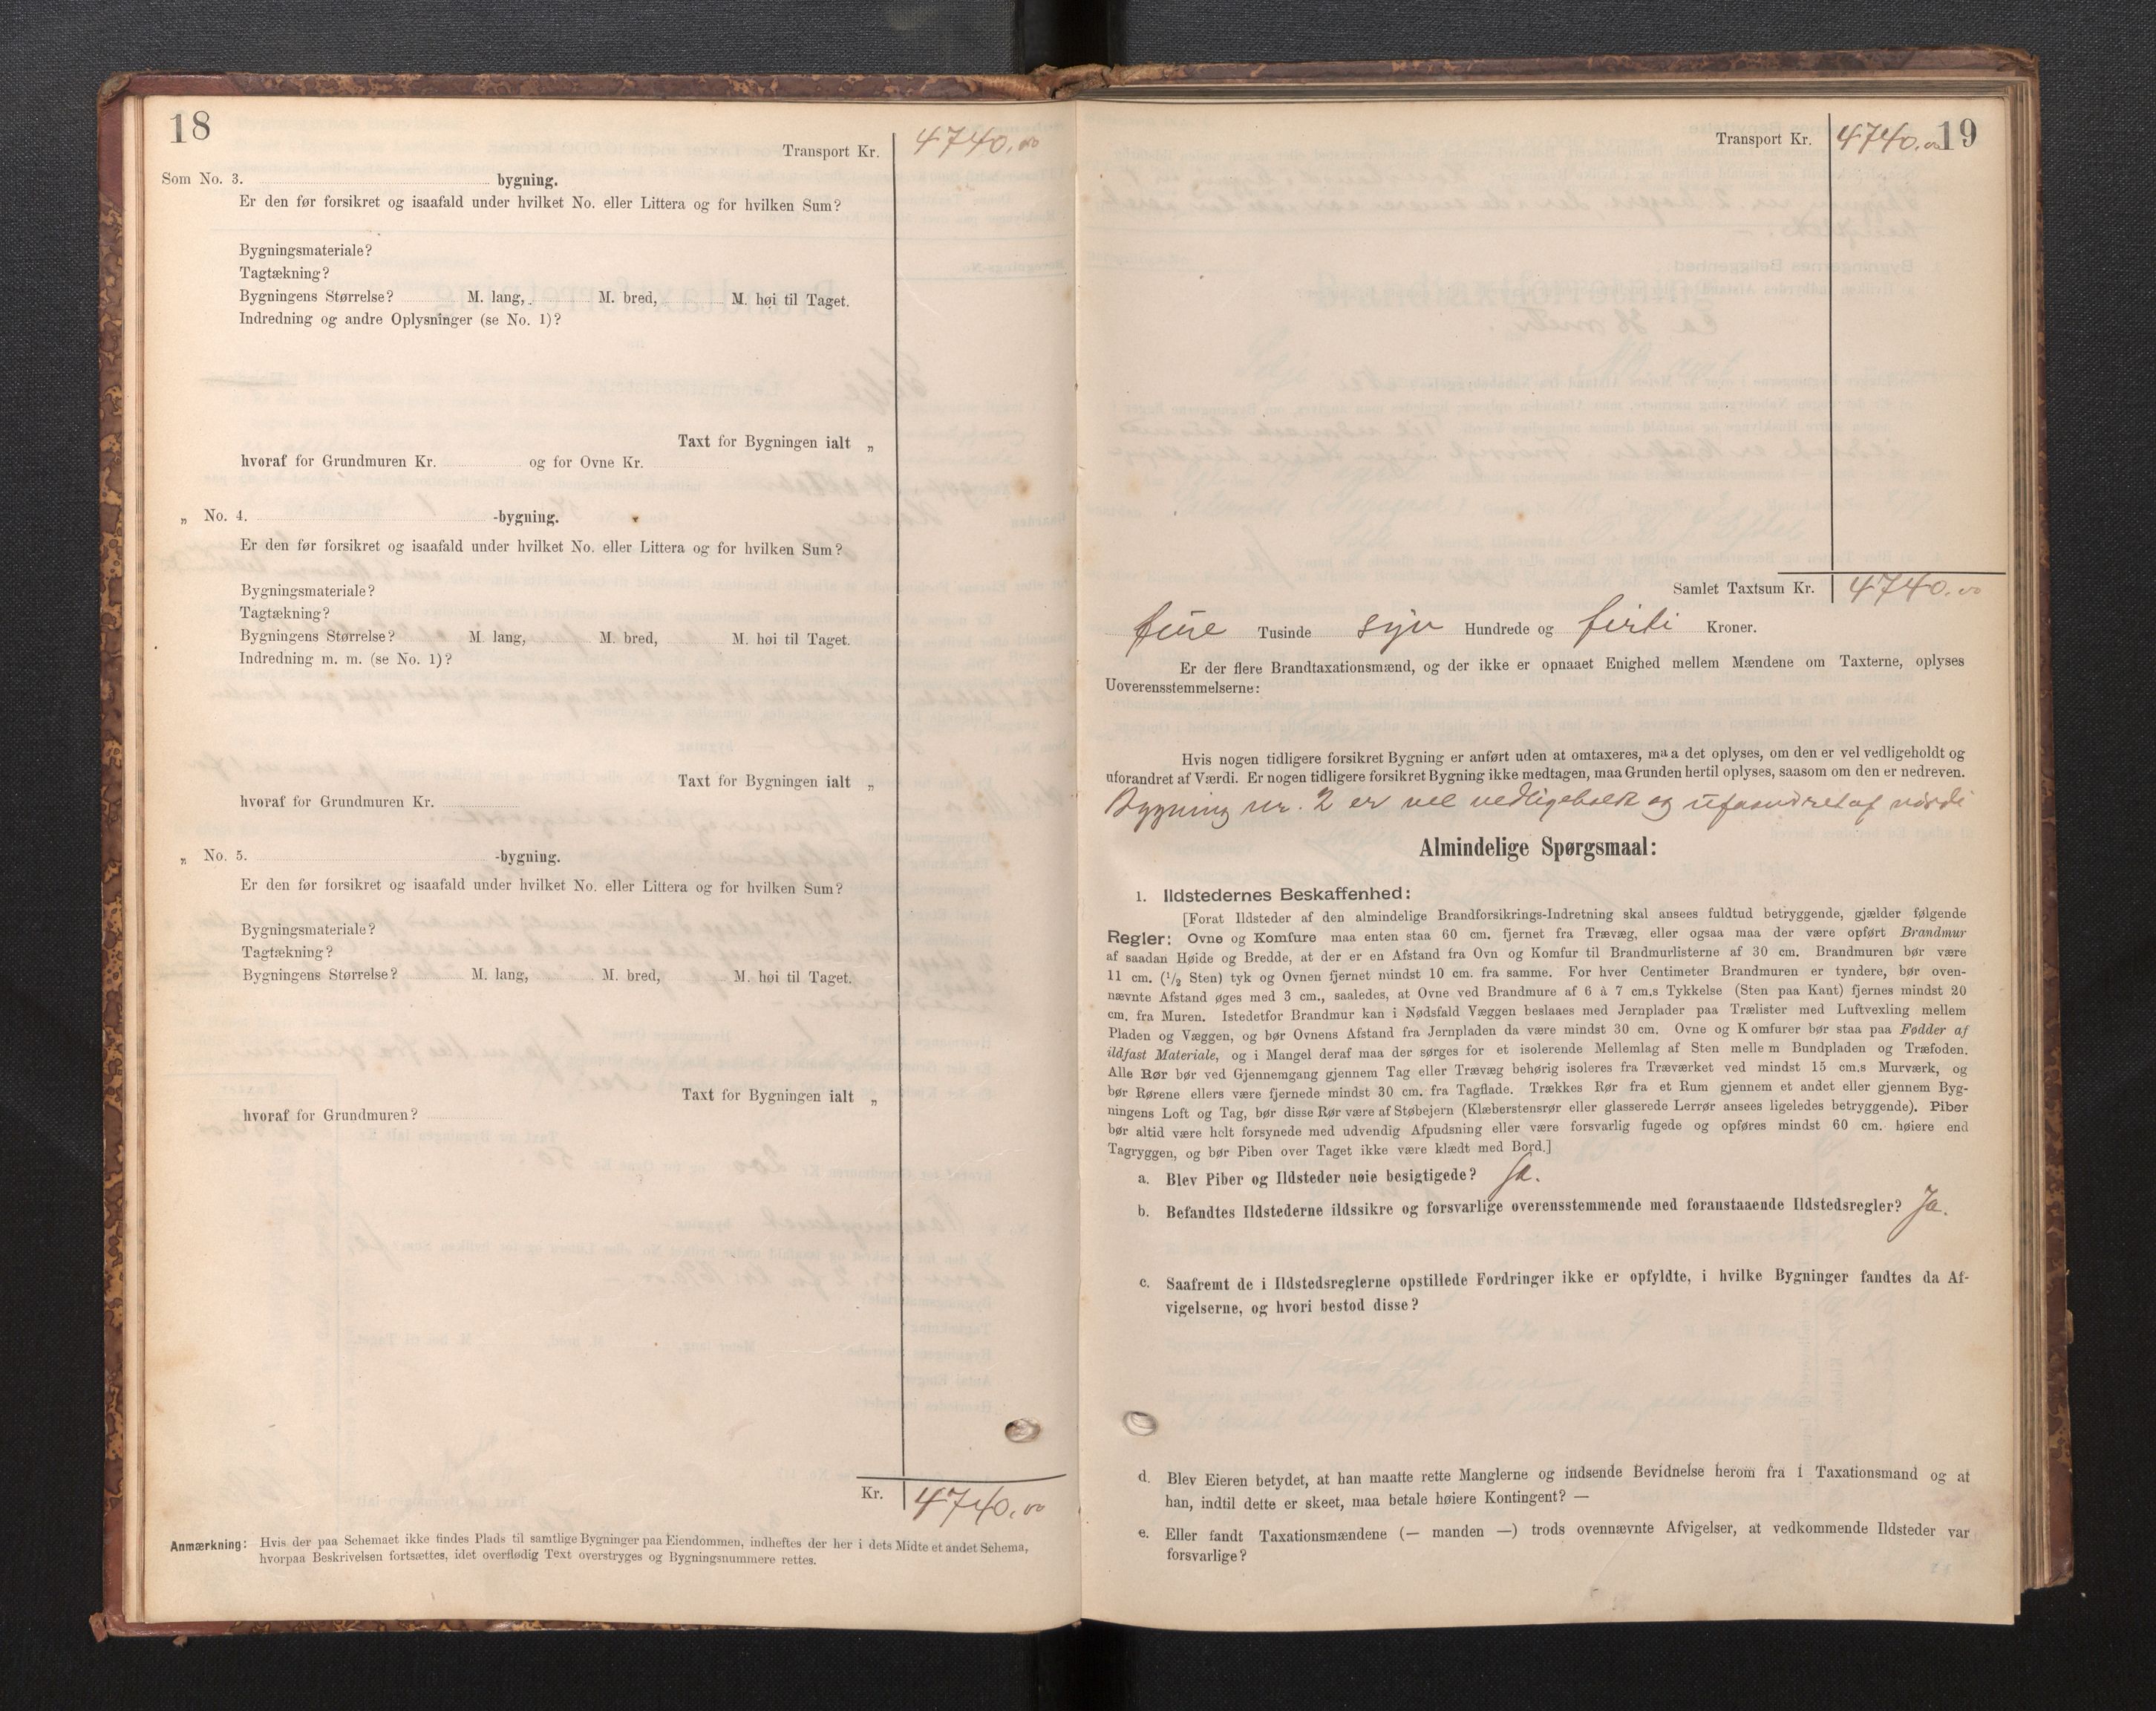 18
Transport Kr. 4740.00
Som No. 3. bygning.
Er den før forsikret og isaafald under hvilket No. eller Littera og for hvilken Sum?
Bygningsmateriale?
Tagtækning?
Bygningens Størrelse? M. lang, M. bred, M. høi til Taget.
Indredning og andre Oplysninger (se No. 1)?
Taxt for Bygningen ialt „
hvoraf for Grundmuren Kr. og for Ovne Kr.
„ No. 4. -bygning.
Er den før forsikret og isaafald under hvilket No. eller Littera og for hvilken Sum?
Bygningsmateriale?
Tagtækning?
Bygningens Størrelse? M. lang, M. bred, M. høi til Taget.
Indredning m. m. (se No. 1)?
Taxt for Bygningen ialt „
hvoraf for Grundmuren Kr.
„ No. 5. -bygning.
Er den før forsikret og isaafald under hvilket No. eller Littera og for hvilken Sum?
Bygningsmateriale?
Tagtækning?
Bygningens Størrelse? M. lang, M. bred, M. høi til Taget.
Taxt for Bygningen ialt „
hvoraf for Grundmuren?
Kr. 4740.00
Anmærkning: Hvis der paa Schemaet ikke findes Plads til samtlige Bygninger paa Eiendommen, indheftes der her i dets Midte et andet Schema,
hvorpaa Beskrivelsen fortsættes, idet overflødig Text overstryges og Bygningsnummere rettes.
19
Transport Kr. 4740.00
Samlet Taxtsum Kr. 4740.00
fire Tusinde syv Hundrede og firti Kroner.
Er der flere Brandtaxationsmænd, og der ikke er opnaaet Enighed mellem Mændene om Taxterne, oplyses
Uoverensstemmelserne:
Hvis nogen tidligere forsikret Bygning er anført uden at omtaxeres, maa det oplyses, om den er vel vedligeholdt og
uforandret af Værdi. Er nogen tidligere forsikret Bygning ikke medtagen, maa Grunden hertil oplyses, saasom om den er nedreven.
Bygning nr. 2 er vel vedligeholdt og uforandret af værdi
Almindelige Spørgsmaal:
1. Ildstedernes Beskaffenhed:
[Forat Ildsteder af den almindelige Brandforsikrings-Indretning skal ansees fuldtud betryggende, gjælder følgende
Regler: Ovne og Komfure maa enten staa 60 cm. fjernet fra Trævæg, eller ogsaa maa der være opført Brandmur
af saadan Høide og Bredde, at der er en Afstand fra Ovn og Komfur til Brandmurlisterne af 30 cm. Brandmuren bør være
11 cm. (1/2 Sten) tyk og Ovnen fjernet mindst 10 cm. fra samme. For hver Centimeter Brandmuren er tyndere, bør oven-
nævnte Afstand øges med 3 cm., saaledes, at Ovne ved Brandmure af 6 à 7 cm.s Tykkelse (Sten paa Kant) fjernes mindst 20
cm. fra Muren. Istedetfor Brandmur kan i Nødsfald Væggen beslaaes med Jernplader paa Trælister med Luftvexling mellem
Pladen og Væggen, og bør Ovnens Afstand fra Jernpladen da være mindst 30 cm. Ovne og Komfurer bør staa paa Fødder af
ildfast Materiale, og i Mangel deraf maa der sørges for et isolerende Mellemlag af Sten mellem Bundpladen og Træfoden.
Alle Rør bør ved Gjennemgang gjennem Tag eller Trævæg behørig isoleres fra Træværket ved mindst 15 cm.s Murværk, og
bør Rørene ellers være fjernede mindst 30 cm. fra Tagflade. Trækkes Rør fra et Rum gjennem et andet eller gjennem Byg-
ningens Loft og Tag, bør disse Rør være af Støbejern (Klæberstensrør eller glasserede Lerrør ansees ligeledes betryggende). Piber
bør altid være helt forsynede med udvendig Afpudsning eller være forsvarlig fugede og opføres mindst 60 cm. høiere end
Tagryggen, og bør Piben over Taget ikke være klædt med Bord.]
a. Blev Piber og Ildsteder nøie besigtigede? Ja.
b. Befandtes Ildstederne ildssikre og forsvarlige overensstemmende med foranstaaende Ildstedsregler? Ja.
c. Saafremt de i Ildstedsreglerne opstillede Fordringer ikke er opfyldte, i hvilke Bygninger fandtes da Af-
vigelserne, og hvori bestod disse?
d. Blev Eieren betydet, at han maatte rette Manglerne og indsende Bevidnelse herom fra 1 Taxationsmand og at
han, indtil dette er skeet, maa betale høiere Kontingent? —
e. Eller fandt Taxationsmændene (— manden —) trods ovennævnte Afvigelser, at vedkommende Ildsteder var
forsvarlige?